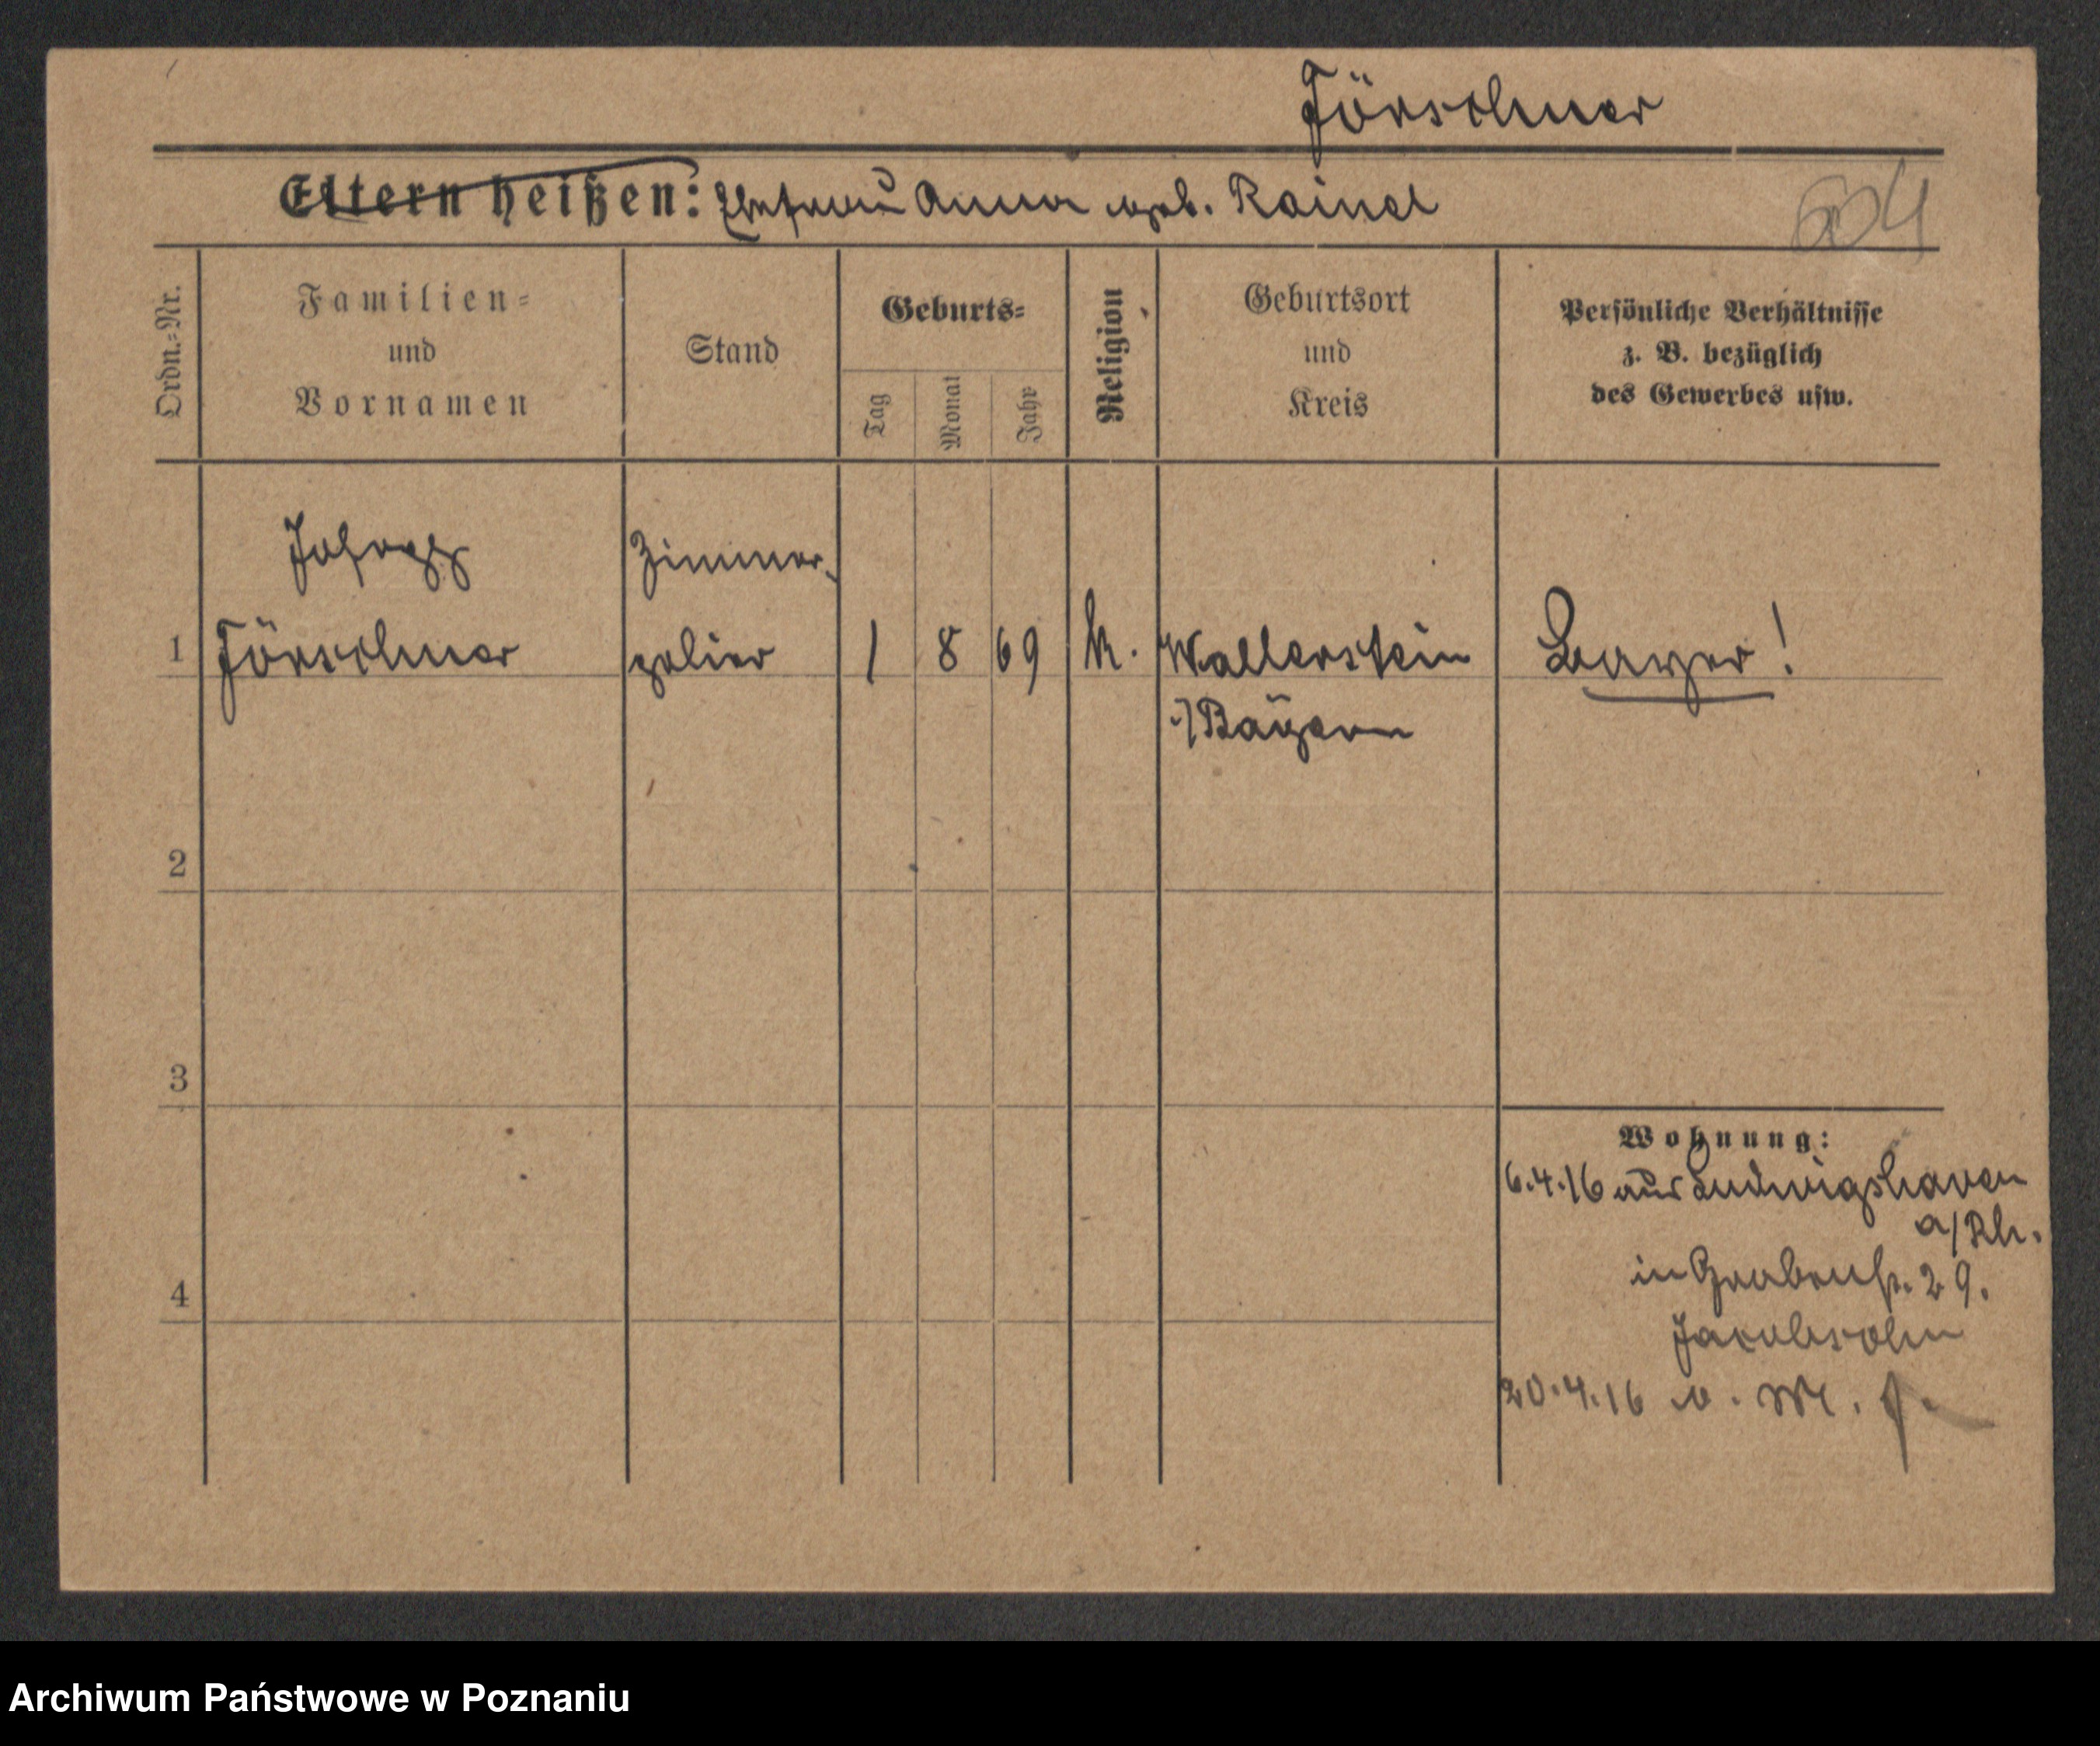 Förschner
Eltern heißen: Ehefrau Anna geb. Rainel
Ordn.-Nr.
Familien-
und
Vornamen
Stand
Geburts-
Tag
Monat
Jahr
Religion
Geburtsort
und
Kreis
Persönliche Verhältnisse
z. B. bezüglich
des Gewerbes usw.
Joseph
Zimmer-
1 Förschner polier 1 8 69 k. Wallerstein Bayer!
i/Bayern
2
3
4
Wohnung:
6.4.16 aus Ludwigshaven
a/Rh.
in Grabenstr. 29.
Jacobsohn
20.4.16 v. M.
Archiwum Państwowe w Poznaniu